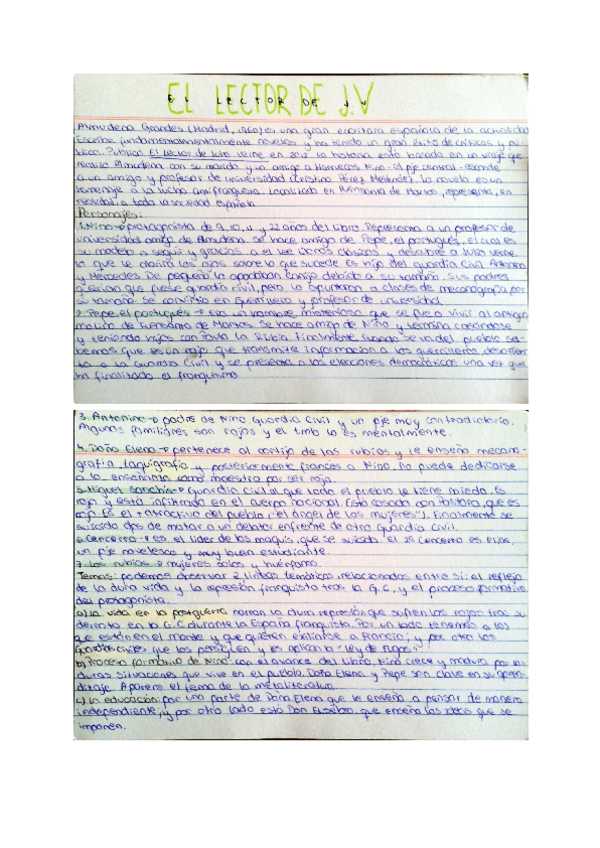 EL LECTOR DE J.V
Almudena Grandes (Madrid, 1960) es una gran escritora española de la actualidad.
Escribe fundamentalmente novelas y ha tenido un gran éxito de críticas y pú-
blico. Publica El lector de Julio Verne en 2012. La historia está basada en un viaje que
realizó Almudena con su marido y un amigo a
a un amigo y profesor de universidad (Cristino Pérez Meléndez). La novela es un
homenaje a la lucha antifranquista. Localizada en Fuensanta de Martos, representa, en
realidad, a toda la sociedad española.
Personajes:
1. Nino → protagonista de 9, 10, 11 y 22 años del libro. Representa a un profesor de
universidad amigo de Almudena. Se hace amigo de Pepe, el portugués, el cual es
su modelo a seguir y gracias a él lee libros clásicos y descubre a Julio Verne,
lo que le abrirá los ojos sobre lo que sucede. Es hijo del guardia civil Antonino
y Mercedes. De pequeño lo apodaban Canijo debido a su tamaño. Sus padres
querían que fuese guardia civil, pero lo apuntaron a clases de mecanografía por
su tamaño. Se convirtió en guerrillero y profesor de universidad.
2. Pepe, el portugués → Era un hombre misterioso que se fue a vivir al antiguo
molino de Fuensanta de Martos. Se hace amigo de Nino y termina casándose
y teniendo hijos con Paula la Rubia. Finalmente, cuando se va del pueblo sa-
bemos que es un rojo que transmite información a los guerrilleros, desorien-
ta a la Guardia Civil y se presenta a las elecciones democráticas una vez que
ha finalizado el franquismo
3. Antonino → padre de Nino. Guardia Civil y un pje muy contradictorio.
Algunos familiares son rojos y él tmb lo es mentalmente.
4. Doña Elena → pertenece al cortijo de las rubias y le enseña mecano-
grafía, taquigrafía y posteriormente francés a Nino. No puede dedicarse
a la enseñanza como maestra por ser roja.
5. Miguel Sanchís → Guardia Civil al que todo el pueblo le tiene miedo. Es
rojo y está infiltrado en el cuerpo nacional (está casado con Pastora, que es
roja. Es el + atractivo del pueblo ("el ángel de las mujeres"). Finalmente se
suicida dps de matar a un delator enfrente de otro Guardia Civil.
6. Cencerro → es el líder de los maquis, que se suicida. El 2º Cencerro es Elías,
un pje novelesco y muy buen estudiante.
7. Las rubias → mujeres solas y huérfano.
Temas: podemos observar 2 líneas temáticas relacionadas entre sí: el reflejo
de la dura vida y la opresión franquista tras la G.C, y el proceso formativo
del protagonista.
a) La vida en la postguerra: narran la dura represión que sufren los rojos tras su
derrota en la G.C durante la España franquista. Por un lado tenemos a los
que están en el monte y que quieren exiliarse a Francia; y por otro los
guardias civiles que los persiguen y les aplican la "ley de fugas".
b) Proceso formativo de Nino: con el avance del libro, Nino crece y madura por las
duras situaciones que vive en el pueblo. Doña Elena y Pepe son clave en su apren-
dizaje. Aparece el tema de la metaliteratura.
c) La educación: por una parte de Doña Elena que le enseña a pensar de manera
independiente; y por otro lado está Don Eusebio, que enseña las ideas que se
imponen.